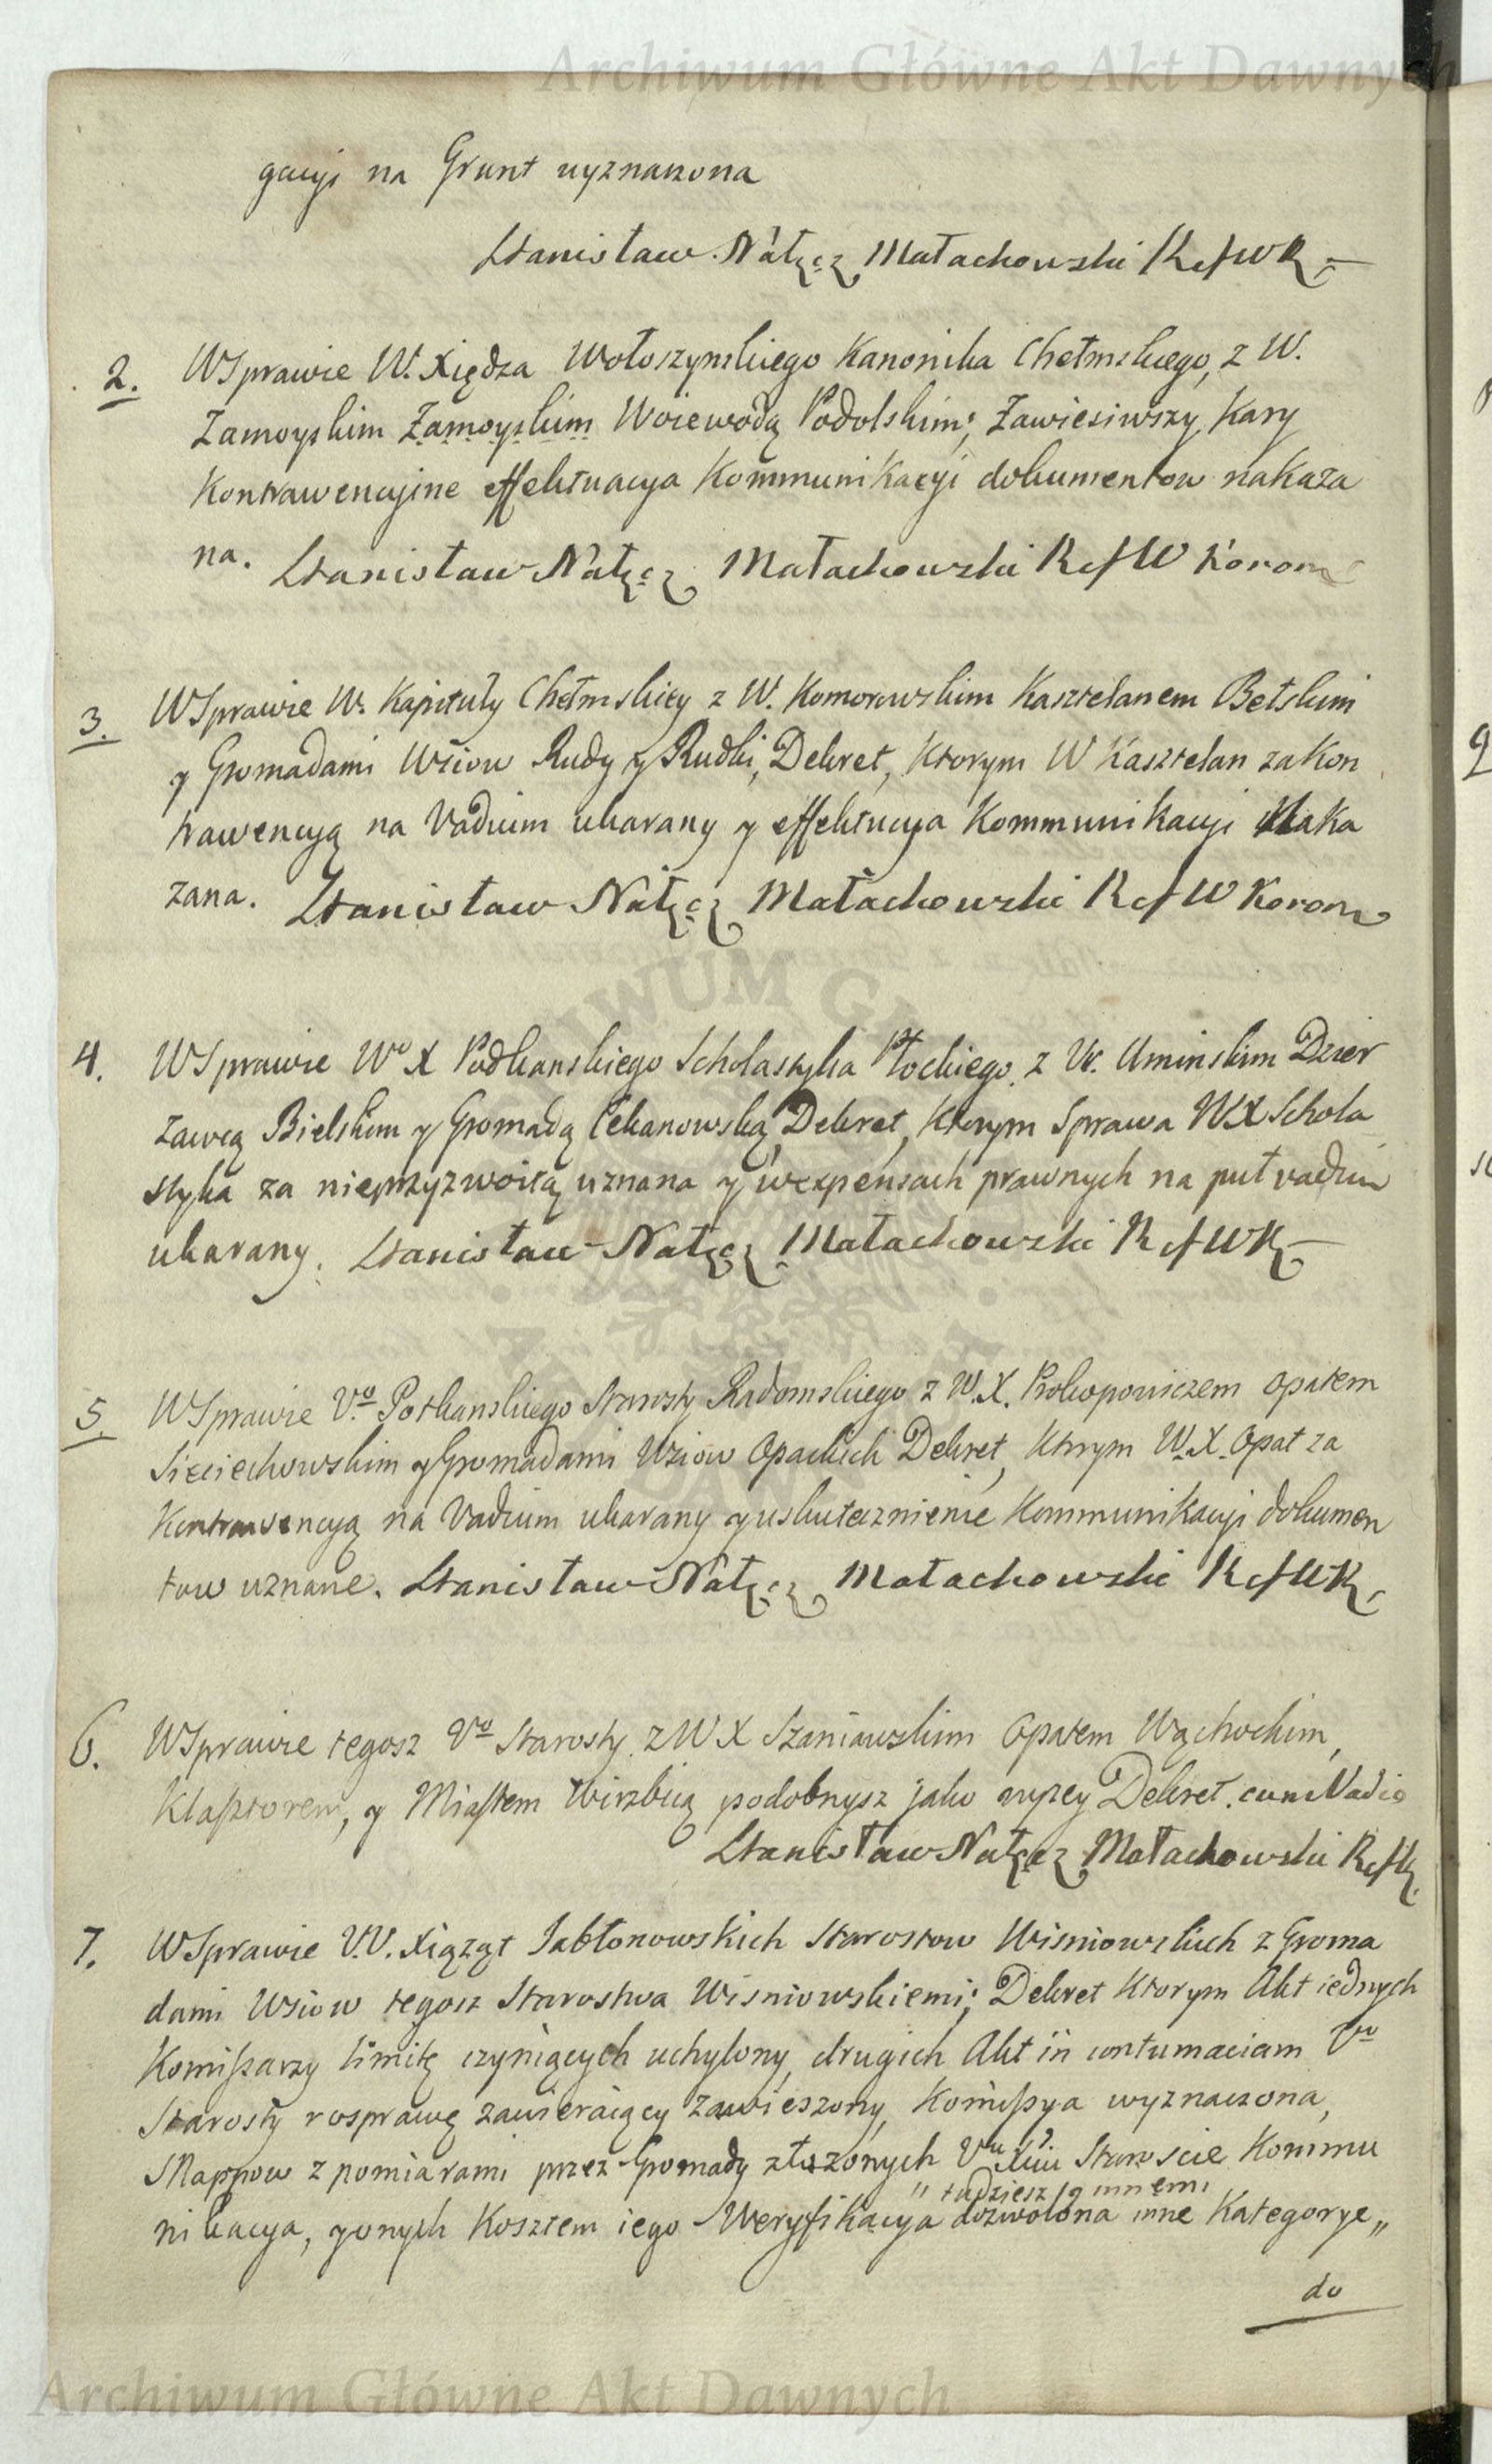 Archiwum Główne Akt Dawnych
gacyi na Grunt wyznaczona
Stanisław Nałęcz Małachowski RefWK
2. WSprawie W. Xiędza Wołoszynskiego Kanonika Chełmskiego, z W.
Zamoyskim Zamoyskim Woiewodą Podolskim; Zawiesiwszy Kary
Kontrawencyine effektuacya Kommunikacyi dokumentow nakaza
na. Stanisław Nałęcz Małachowski RefW Koron
3. WSprawie W. Kapituły Chełmskiey z W. Komorowskim Kasztelanem Bełskim
y Gromadami Wsiow Rudy y Rudki, Dekret, Ktorym W Kasztelan za Kon
trawencyą na Vadium ukarany y effektucya Kommunikacyi Naka
zana. Stanisław Nałęcz Małachowski RefW Koron
4. WSprawie Wo X Podkanskiego Scholastyka Płockiego z W. Uminskim Dzier
zawcą Bielskim y Gromadą Cekanowską, Dekret, Ktorym Sprawa WX Schola
styka za nieprzyzwoitą uznana y wexpensach prawnych na puł vadiu
ukarany. Stanisław Nałęcz Małachowski RefWK
5. WSprawie Vo Potkanskiego Starosty Radomskiego z W.X. Prokopowiczem Opatem
Sieciechowskim y Gromadami Wsiow Opackich Dekret, Ktorym W.X. Opat za
Kontrawencyą na Vadium ukarany y uskutecznienie Kommunikacyi dokumen
tow uznane. Stanisław Nałęcz Małachowski RefWK
6. WSprawie tegosz Vo Starosty z W X Szaniawskim Opatem Wąchockim,
Klasztorem, y Miastem Wirzbicą podobnysz jako wyzey Dekret. cum Vadio
Stanisław Nałęcz Małachowski RefK
7. WSprawie V.V. Xiąząt Jabłonowskich Starostow Wisniowskich z Groma
dami Wsiow tegosz Starostwa Wisniowskiemi; Dekret Ktorym Akt iednych
Komissarzy limitę czyniących uchylony, drugich Akt in contumaciam Vo
Starosty rosprawę zawieraiący zawieszony, Komissya wyznaczona,
Mappow z pomiarami przez Gromady złozonych Vu Xciu Staroscie Kommu
" tudziesz innemi
nikacya, y onych Kosztem iego Weryfikacya dozwolona inne Kategorye"
do
Archiwum Główne Akt Dawnych